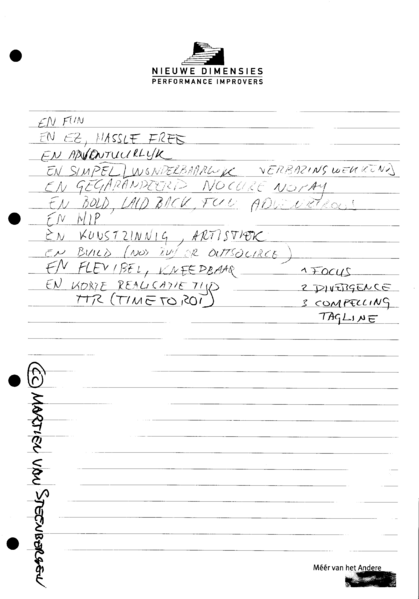 NIEUWE DIMENSIES
PERFORMANCE IMPROVERS
EN FIJN
EN EZ, HASSLE FREE
EN ADVONTUURLIJK
EN SIMPEL WONDERBAARLIJK VERBAZINGWEKKEND
EN GEGARANDEERD NO CURE NO PAY
EN BOLD, LAID BACK, FULL
EN HIP
EN KUNSTZINNIG, ARTISTIEK
EN BUILD (NOS OUTSOURCE)
EN FLEXIBEL, KNEEDBAAR 1 FOCUS
EN KORTE REALISATIE TIJD 2 DIVERGENCE
TTR (TIME TO ROI) 3 COMPELLING
TAGLINE
(CC) MARTIEN VAN STEENBERGEN
Méér van het Andere